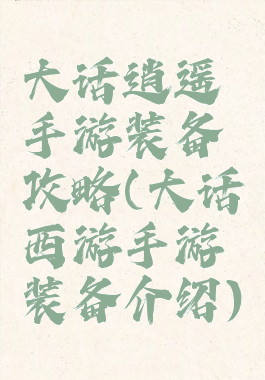 大话逍遥
手游装备
攻略(大话
西游手游
装备介绍)